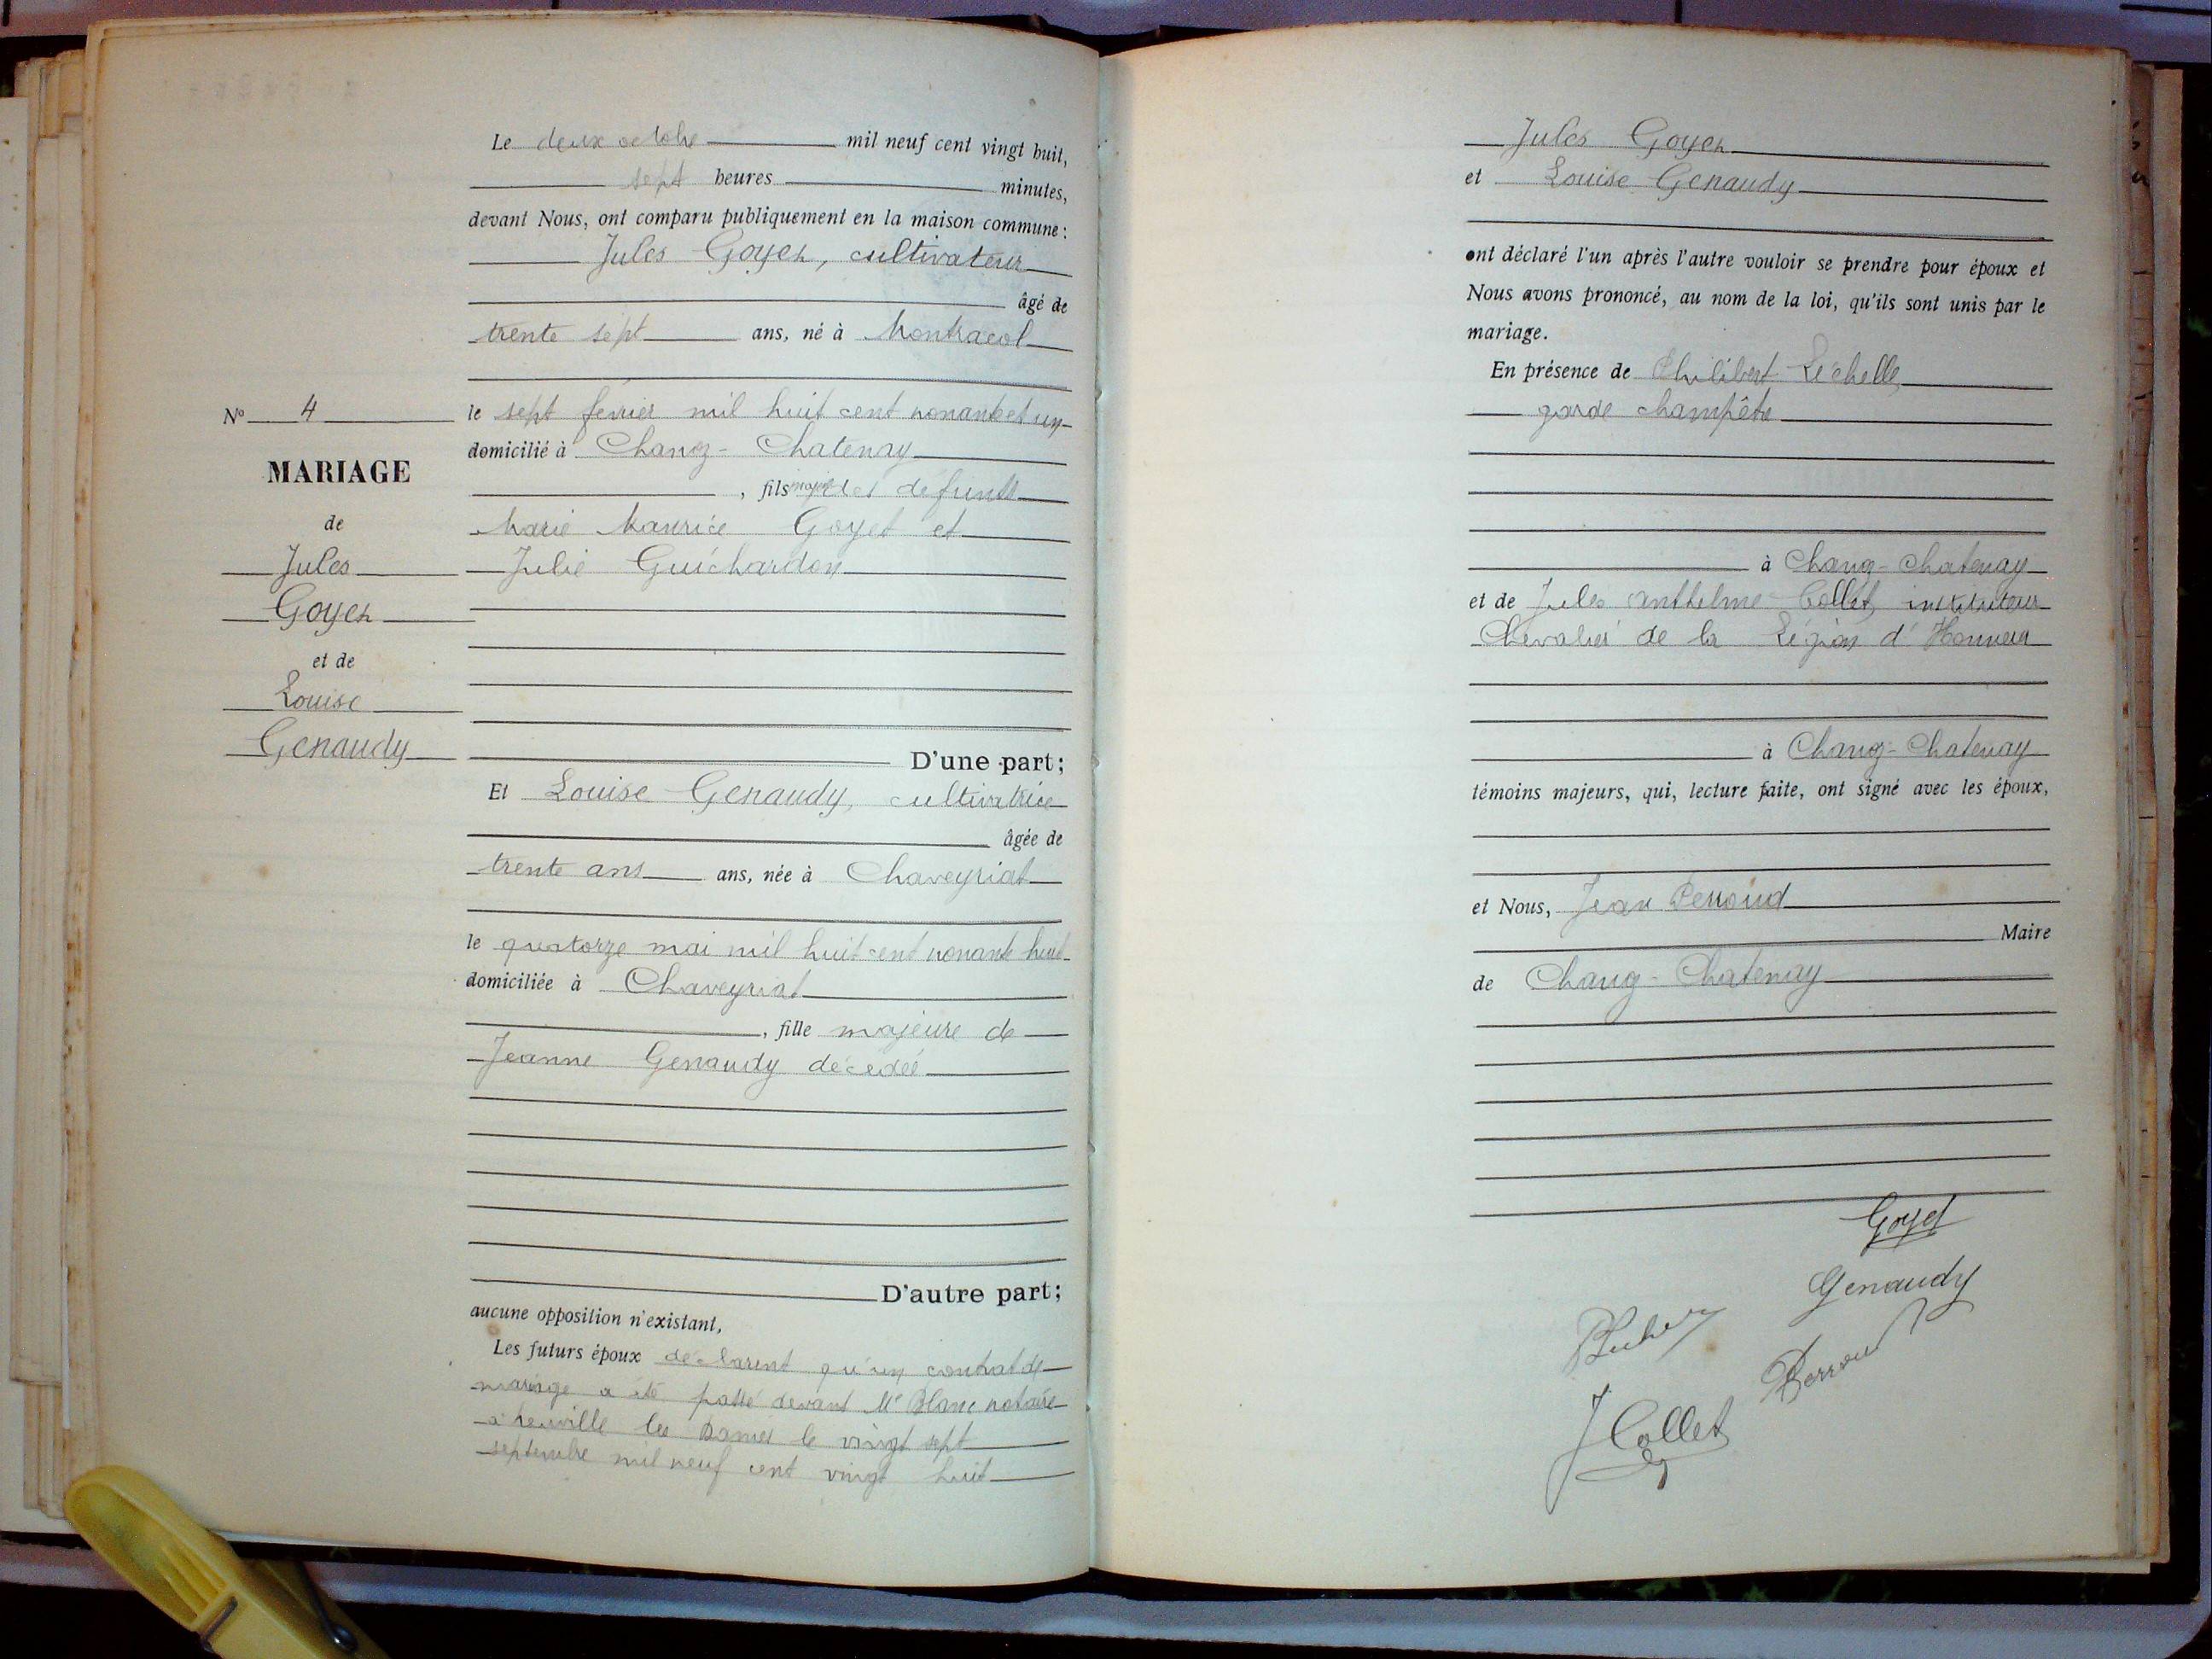 Nº 4
MARIAGE
de
Jules
Goyet
et de
Louise
Genaudy
Le deux octobre mil neuf cent vingt huit,
sept heures minutes,
devant Nous, ont comparu publiquement en la maison commune :
Jules Goyet, cultivateur
âgé de
trente sept ans, né à Montracol
le sept février mil huit cent nonante et un
domicilié à Chanoz-Chatenay
, fils majeur des defunts
Marie Maurice Goyet et
Julie Guichardon
D'une part;
Et Louise Genaudy, cultivatrice
âgée de
trente ans ans, née à Chaveyriat
le quatorze mai mil huit cent nonante huit
domiciliée à Chaveyriat
, fille majeure de
Jeanne Genaudy décédée
D'autre part;
aucune opposition n'existant,
Les futurs époux déclarent qu'un contrat de
mariage a été passé devant Me Blanc notaire
à Neuville les Dames le vingt sept
septembre mil neuf cent vingt huit
Jules Goyet
et Louise Genaudy
ont déclaré l'un après l'autre vouloir se prendre pour époux et
Nous avons prononcé, au nom de la loi, qu'ils sont unis par le
mariage.
En présence de Philibert Lechelle
garde champêtre
à Chanoz-Chatenay
et de Jules Anthelme Collet, instituteur
Chevalier de la Légion d'Honneur
à Chanoz-Chatenay
témoins majeurs, qui, lecture faite, ont signé avec les époux,
et Nous, Jean Perroud
Maire
de Chanoz-Chatenay
Goyet
Genaudy
Perroud
J Collet